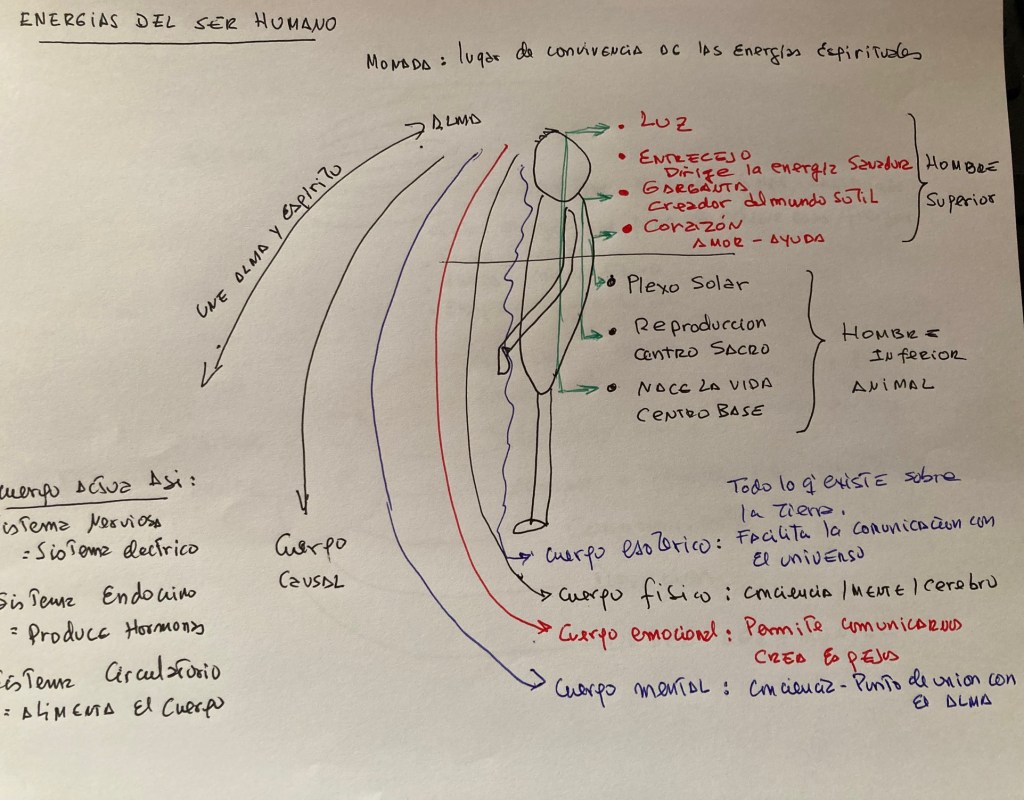 ENERGÍAS DEL SER HUMANO
MONADA: lugar de convivencia de las energías Espirituales
ALMA
UNE ALMA Y ESPÍRITO
• LUZ
• ENTRECEJO
Dirige la energía
• GARGANTA
Creador del mundo SUTIL
• Corazón
AMOR - AYUDA
HOMBRE
Superior
• Plexo Solar
• Reproduccion
CENTRO SACRO
• NACE LA VIDA
CENTRO BASE
HOMBRE
Inferior
ANIMAL
Cuerpo
CAUSAL
uerpo ACTUA ASi:
istema Nervioso
= Sistema electrico
Sistema Endocrino
= Produce Hormonas
istema Circulatorio
= ALIMENTA El Cuerpo
Todo lo q' EXISTE sobre
la Tierra.
Cuerpo esotérico: Facilita la comunicación con
El universo
Cuerpo físico: conciencia / MENTE / Cerebro
Cuerpo emocional: Permite comunicarnos
CREA ESPEJOS
Cuerpo mental: conciencia - Punto de union con
El ALMA